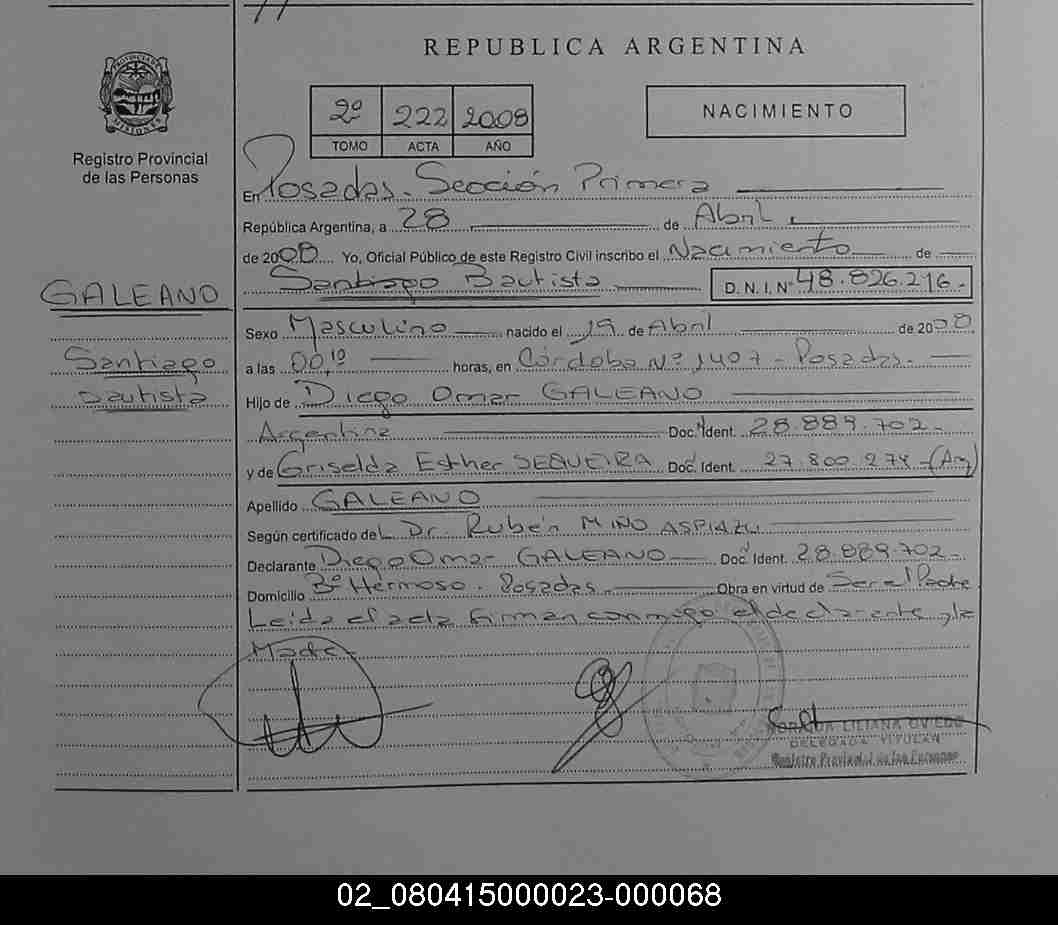 REPUBLICA ARGENTINA
PROVINCIA DE MISIONES
Registro Provincial
de las Personas
2º 222 2008
TOMO ACTA AÑO
NACIMIENTO
En Posadas - Sección Primera
República Argentina, a 28 de Abril
de 2008 Yo, Oficial Público de este Registro Civil inscribo el Nacimiento de
Santiago Bautista D.N.I. Nº 48.826.216.-
GALEANO
Santiago
Bautista
Sexo Masculino nacido el 19 de Abril de 2008
a las 00,10 horas, en Córdoba Nº 1407 - Posadas.-
Hijo de Diego Omar GALEANO
Argentina Doc. Ident. 28.889.702.-
y de Griselda Esther SEQUEIRA Doc. Ident. 27.800.274 -(Arg)
Apellido GALEANO
Según certificado del Dr. Rubén MIÑO ASPIAZU
Declarante Diego Omar GALEANO Doc. Ident. 28.889.702.-
Domicilio Bº Hermoso. Posadas. Obra en virtud de Ser el Padre
Leida el acta firman conmigo el declarante y la
Madre.-
LILIANA OVIEDO
DELEGADA TITULAR
Registro Provincial de las Personas
02_080415000023-000068